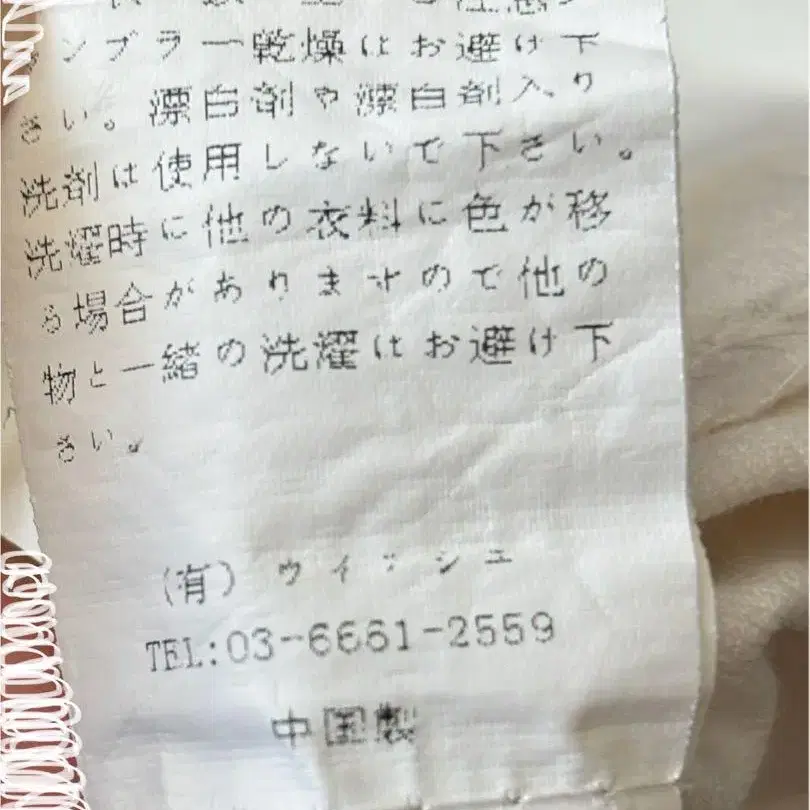 ンブラー乾燥はお避け下
さい。漂白剤や漂白剤入り
洗剤は使用しないで下さい。
洗濯時に他の衣料に色が移
る場合がありますので他の
物と一緒の洗濯はお避け下
さい。
(有) ウィッシュ
TEL:03-6661-2559
中国製